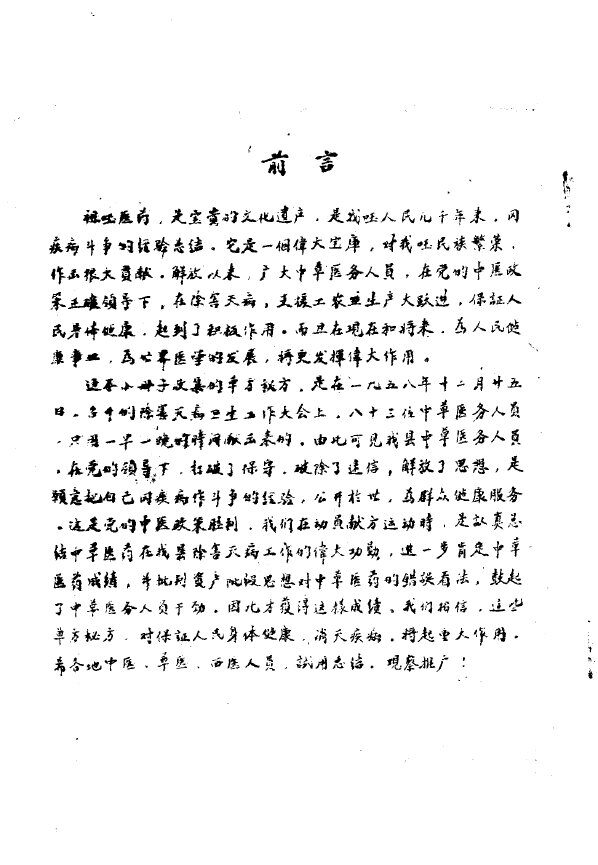 前言
祖国医药，是宝贵的文化遗产，是我国人民几千年来，同
疾病斗争的经验总结。它是一個偉大宝庫，对我国民族繁荣，
作出很大貢献。解放以来，广大中草医务人員，在党的中医政
策正确领导下，在除害灭病，支援工农业生产大跃进，保証人
民身体健康，起到了积极作用。而且在現在和将来，為人民健
康事业，為世界医学的发展，将更发揮偉大作用。
这本小册子收集的单方秘方，是在一九五八年十二月廿五
日，召开的除害灭病卫生工作大会上，八十三位中草医务人員
，只用一早一晚的時间献出来的。由此可見我县中草医务人員
，在党的领导下，打破了保守，破除了迷信，解放了思想，是
願意把自己同疾病作斗争的经验，公开於世，為群众健康服务
。这是党的中医政策胜利，我们在动員献方运动時，是認真总
结中草医药在我县除害灭病工作的偉大功勛，進一步肯定中草
医药成績，并批判资产阶级思想对中草医药的錯誤看法，鼓起
了中草医务人員干劲。因此才获得这樣成績。我们相信，这些
单方秘方，对保証人民身体健康，消灭疾病，将起重大作用。
希各地中医、草医、西医人員，試用总结，观察推广！